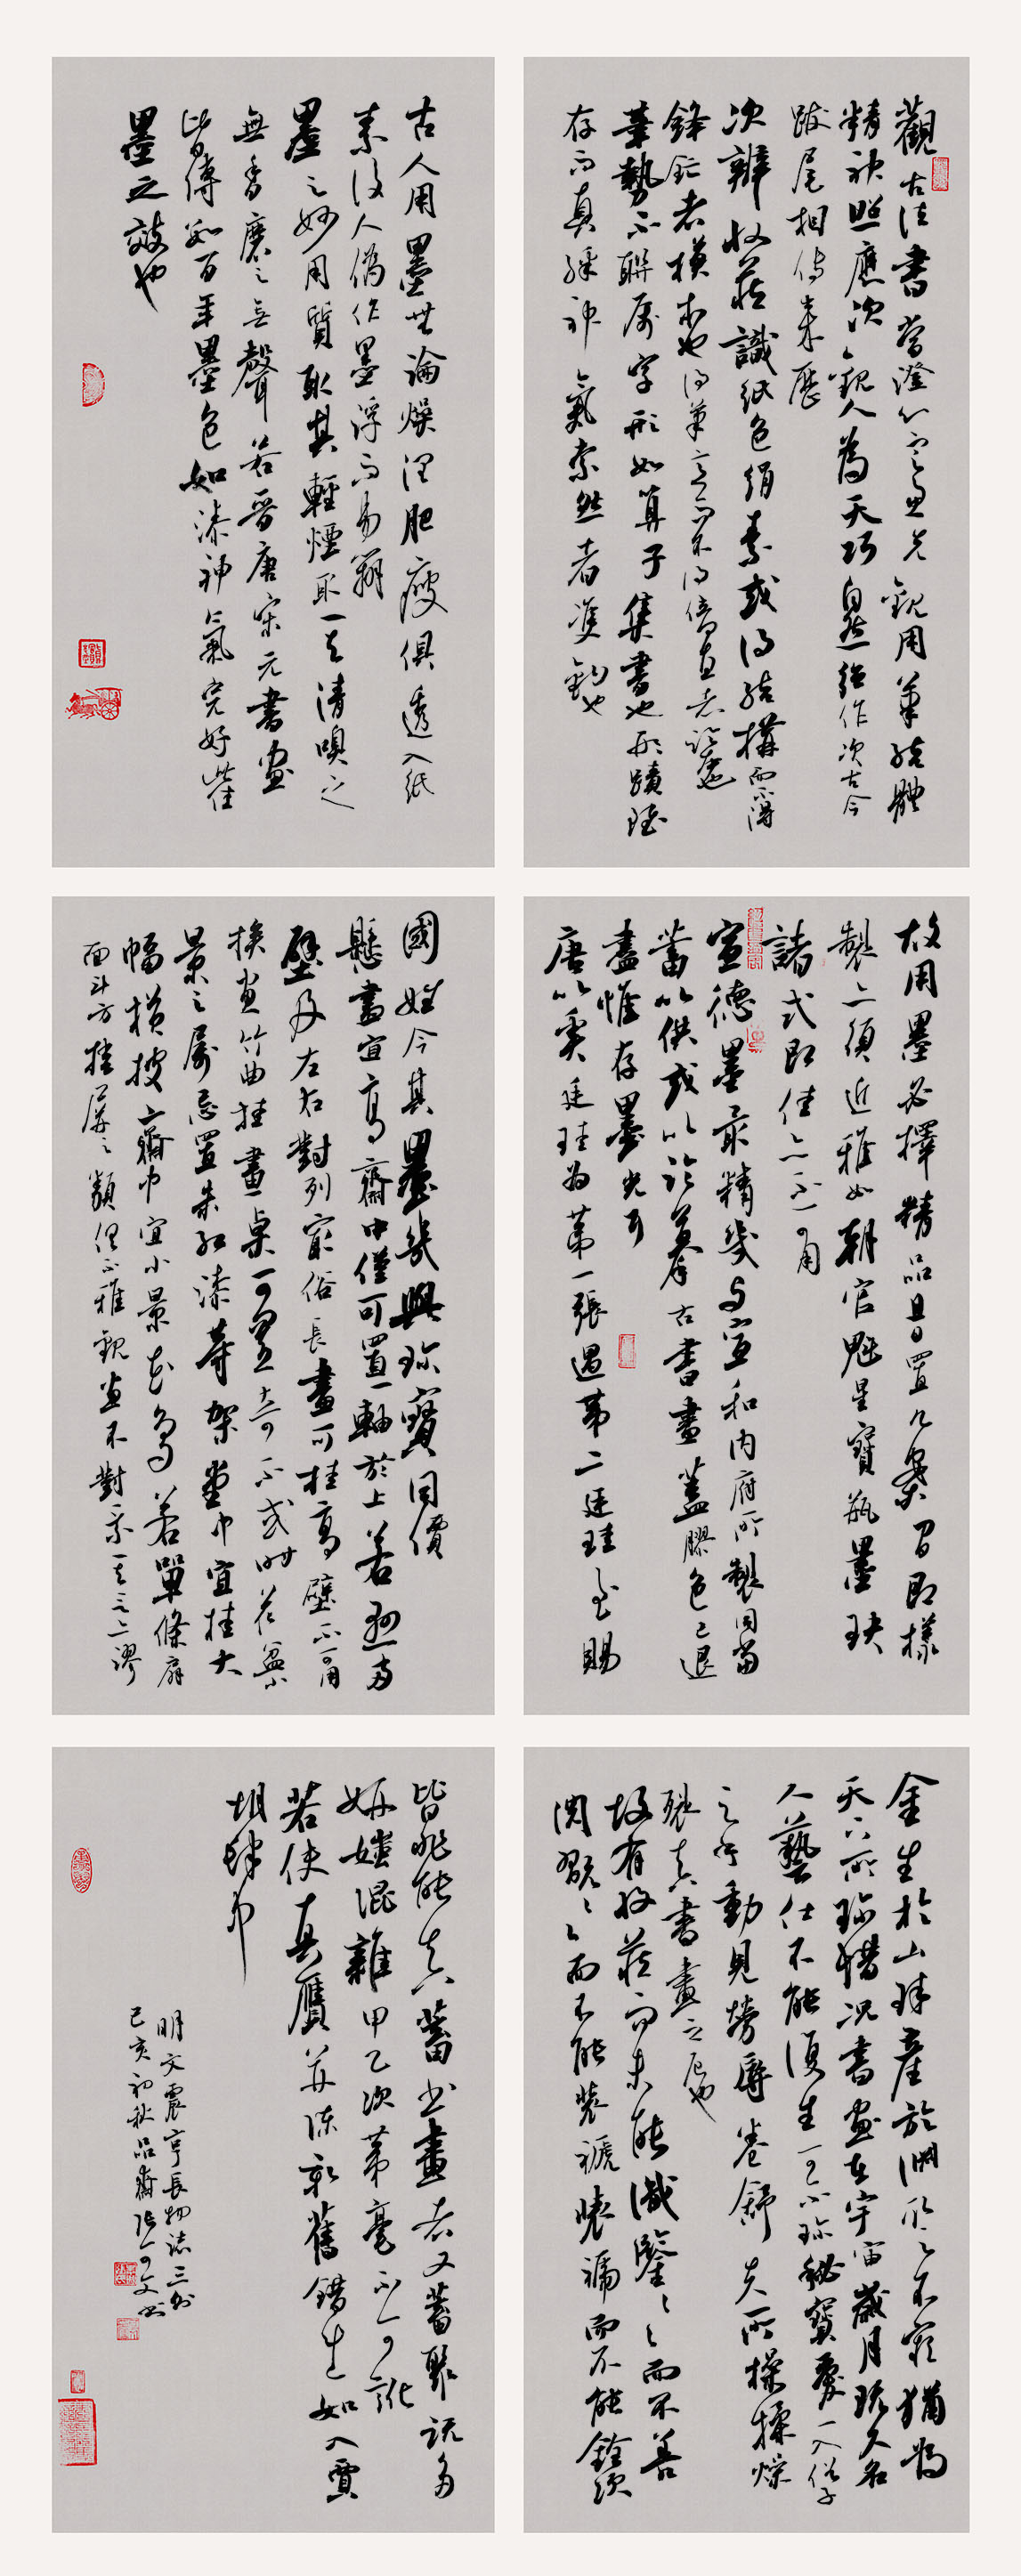 觀古法書當澄心定慮先觀用筆結體
精神照應次觀人為天巧自然強作次古今
跋尾相傳來歷
次辨收藏識紙色絹素或得結構而不得
鋒鋩者模本也得筆意而不得位置者臨書也
筆勢不聯屬字形如算子集書也形蹟雖
存而真彩神氣索然者雙鉤也
古人用墨無論燥潤肥瘦俱透入紙
素後人偽作墨浮而易辨
墨之妙用質取其輕煙取其清嗅之
無香磨之無聲若晉唐宋元書畫
皆傳數百年墨色如漆神氣完好此佳
墨之效也
故用墨必擇精品且日置几案間即樣
製亦須近雅如朝官魁星寶瓶墨玦
諸式即佳亦不可用
宣德墨最精幾與宣和內府所製同當
蓄以供或以臨摹古書畫蓋膠色已退
盡惟存墨光耳
唐以奚廷珪為第一張遇第二廷珪至賜
國姓今其墨幾與珍寶同價
懸畫宜高齋中僅可置一軸於上若懸兩
壁及左右對列最俗長畫可挂高壁不可用
挨畫竹曲挂畫桌可置奇石或時花盆
景之屬忌置朱紅漆等架堂中宜挂大
幅橫披齋中宜小景花鳥若單條扇
面斗方挂屏之類俱不雅觀畫不對景其言亦謬
金生於山珠產於淵取之不窮猶為
天下所珍惜況書畫在宇宙歲月既久名
人藝仕不能復生可不珍秘寶愛一入俗子
之手動見勞辱卷舒失所操揉燥
裂真書畫之厄也
故有收藏而未能識鑒識鑒而不善
閱翫閱翫而不能裝褫裝褫而不能銓次
皆非能真蓄書畫者又蓄聚既多
妍媸混雜甲乙次第毫不可訛
若使真贗並陳新舊錯出如入賈
胡肆中
明文震亨長物志三則
己亥初秋品齋張可文書